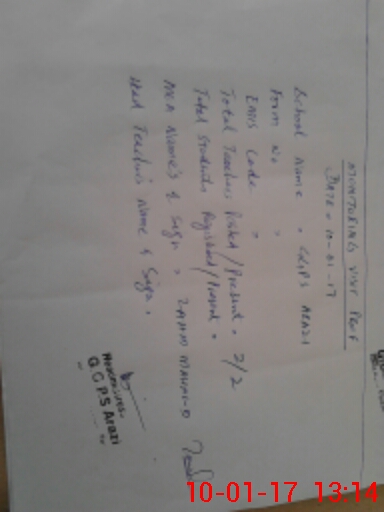 MONITORING VISIT PROF
DATE = 10-01-17
School Name = GGPS ARAZI
Form No "
EMIS Code "
Total Teachers Posted/Present = 2/2
Total Students Registered/Present =
MEA Name's & Sign =
Head Teacher's Name & Sign.
Headmistress
G.G.P.S Arazi
10-01-17 13:14